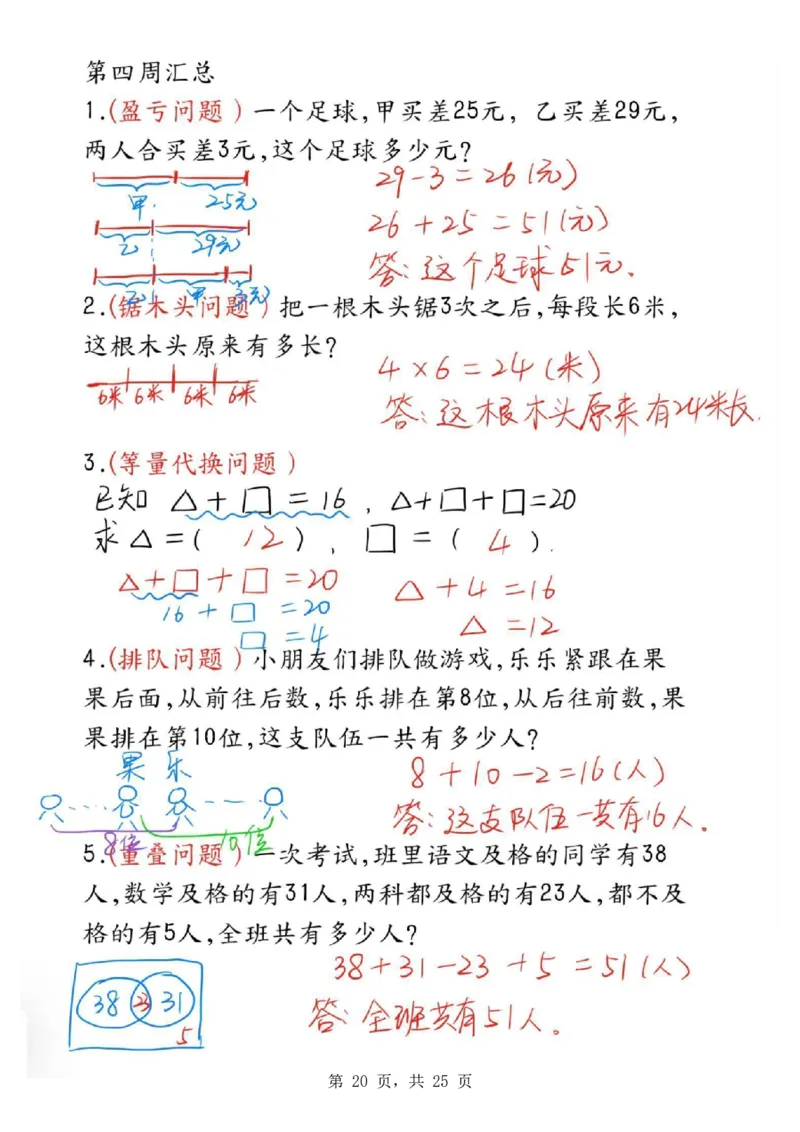 第四周汇总
1.(盈亏问题)一个足球,甲买差25元, 乙买差29元,
两人合买差3元,这个足球多少元?
29-3=26(元)
甲. 25元
26+25=51(元)
乙 29元
答:这个足球51元.
乙 甲 3元
2.(锯木头问题)把一根木头锯3次之后,每段长6米,
这根木头原来有多长?
4×6=24(米)
6米 6米 6米 6米
答:这根木头原来有24米长.
3.(等量代换问题)
已知 △+□=16 , △+□+□=20
求△=( 12 ) , □=( 4 ).
△+□+□=20
△+4=16
16+□=20
△=12
□=4
4.(排队问题)小朋友们排队做游戏,乐乐紧跟在果
果后面,从前往后数,乐乐排在第8位,从后往前数,果
果排在第10位,这支队伍一共有多少人?
果 乐
8+10-2=16(人)
答:这支队伍一共有16人.
8位 10位
5.(重叠问题)一次考试,班里语文及格的同学有38
人,数学及格的有31人,两科都及格的有23人,都不及
格的有5人,全班共有多少人?
38+31-23+5=51(人)
38 23 31
5
答:全班共有51人。
第 20 页，共 25 页